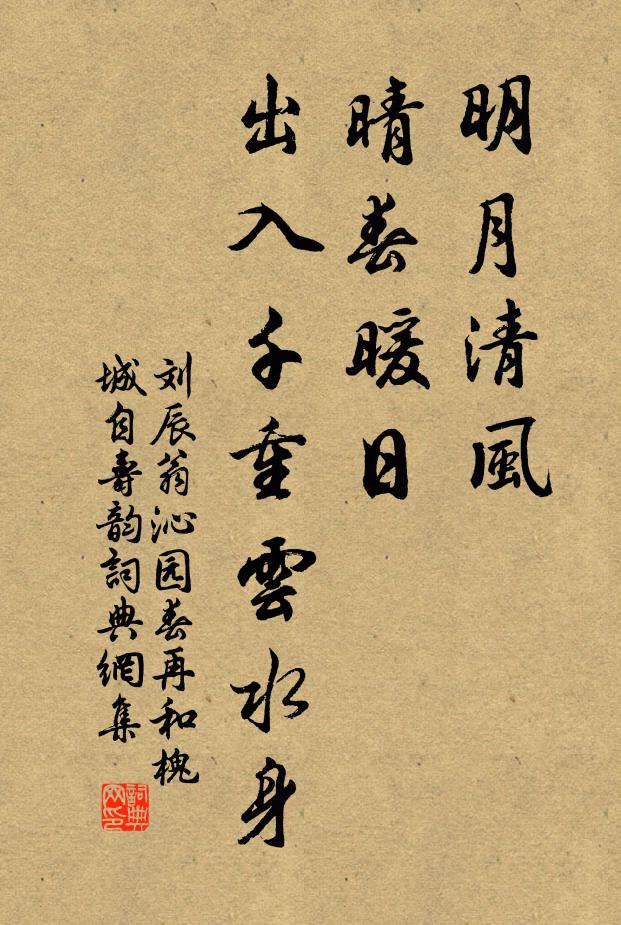 明月清風
晴春暖日
出入千重雲水身
刘辰翁沁园春再和槐
城自壽韵詞典網集
詞典
网印